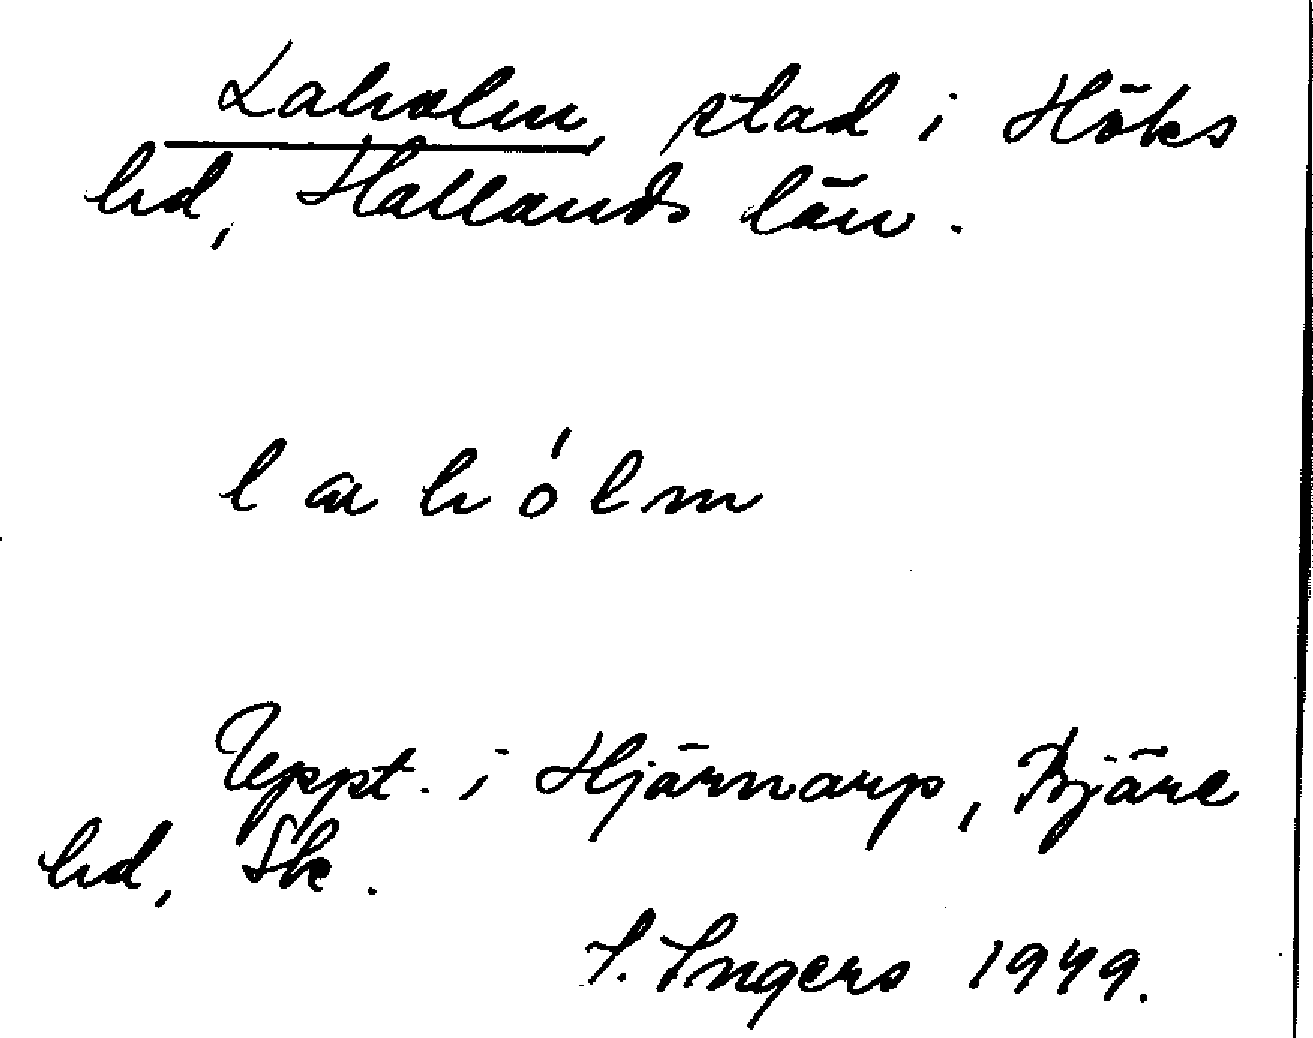 Laholm, stad i Höks
hd, Hallands län.
l a h ó l m
Uppt. i Hjärnarp, Bjäre
hd, Sk.
I. Ingers 1949.